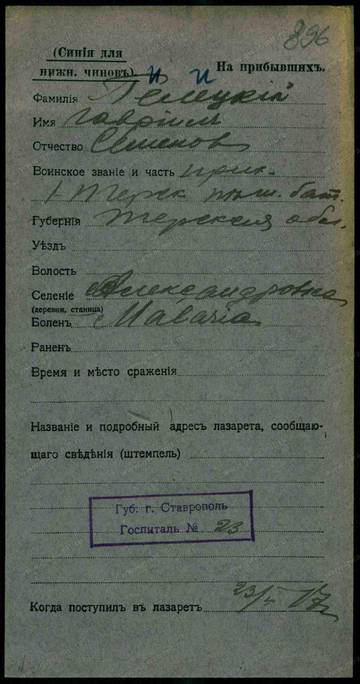 896
(Синія для
нижн. чиновъ).
На прибывшихъ.
Фамилія Гелецкій
Имя Гавріил
Отчество Семенов
Воинское званіе и часть прик.
1 Терек. пласт. бат.
Губернія Терская обл.
Уѣздъ
Волость
Селеніе Александровка
(деревни, станица)
Боленъ Малярія
Раненъ
Время и мѣсто сраженія
Названіе и подробный адресъ лазарета, сообщаю-
щаго свѣдѣнія (штемпель)
Губ. г. Ставрополь
Госпиталь № 23
Когда поступилъ въ лазаретъ 23/I 17 г.